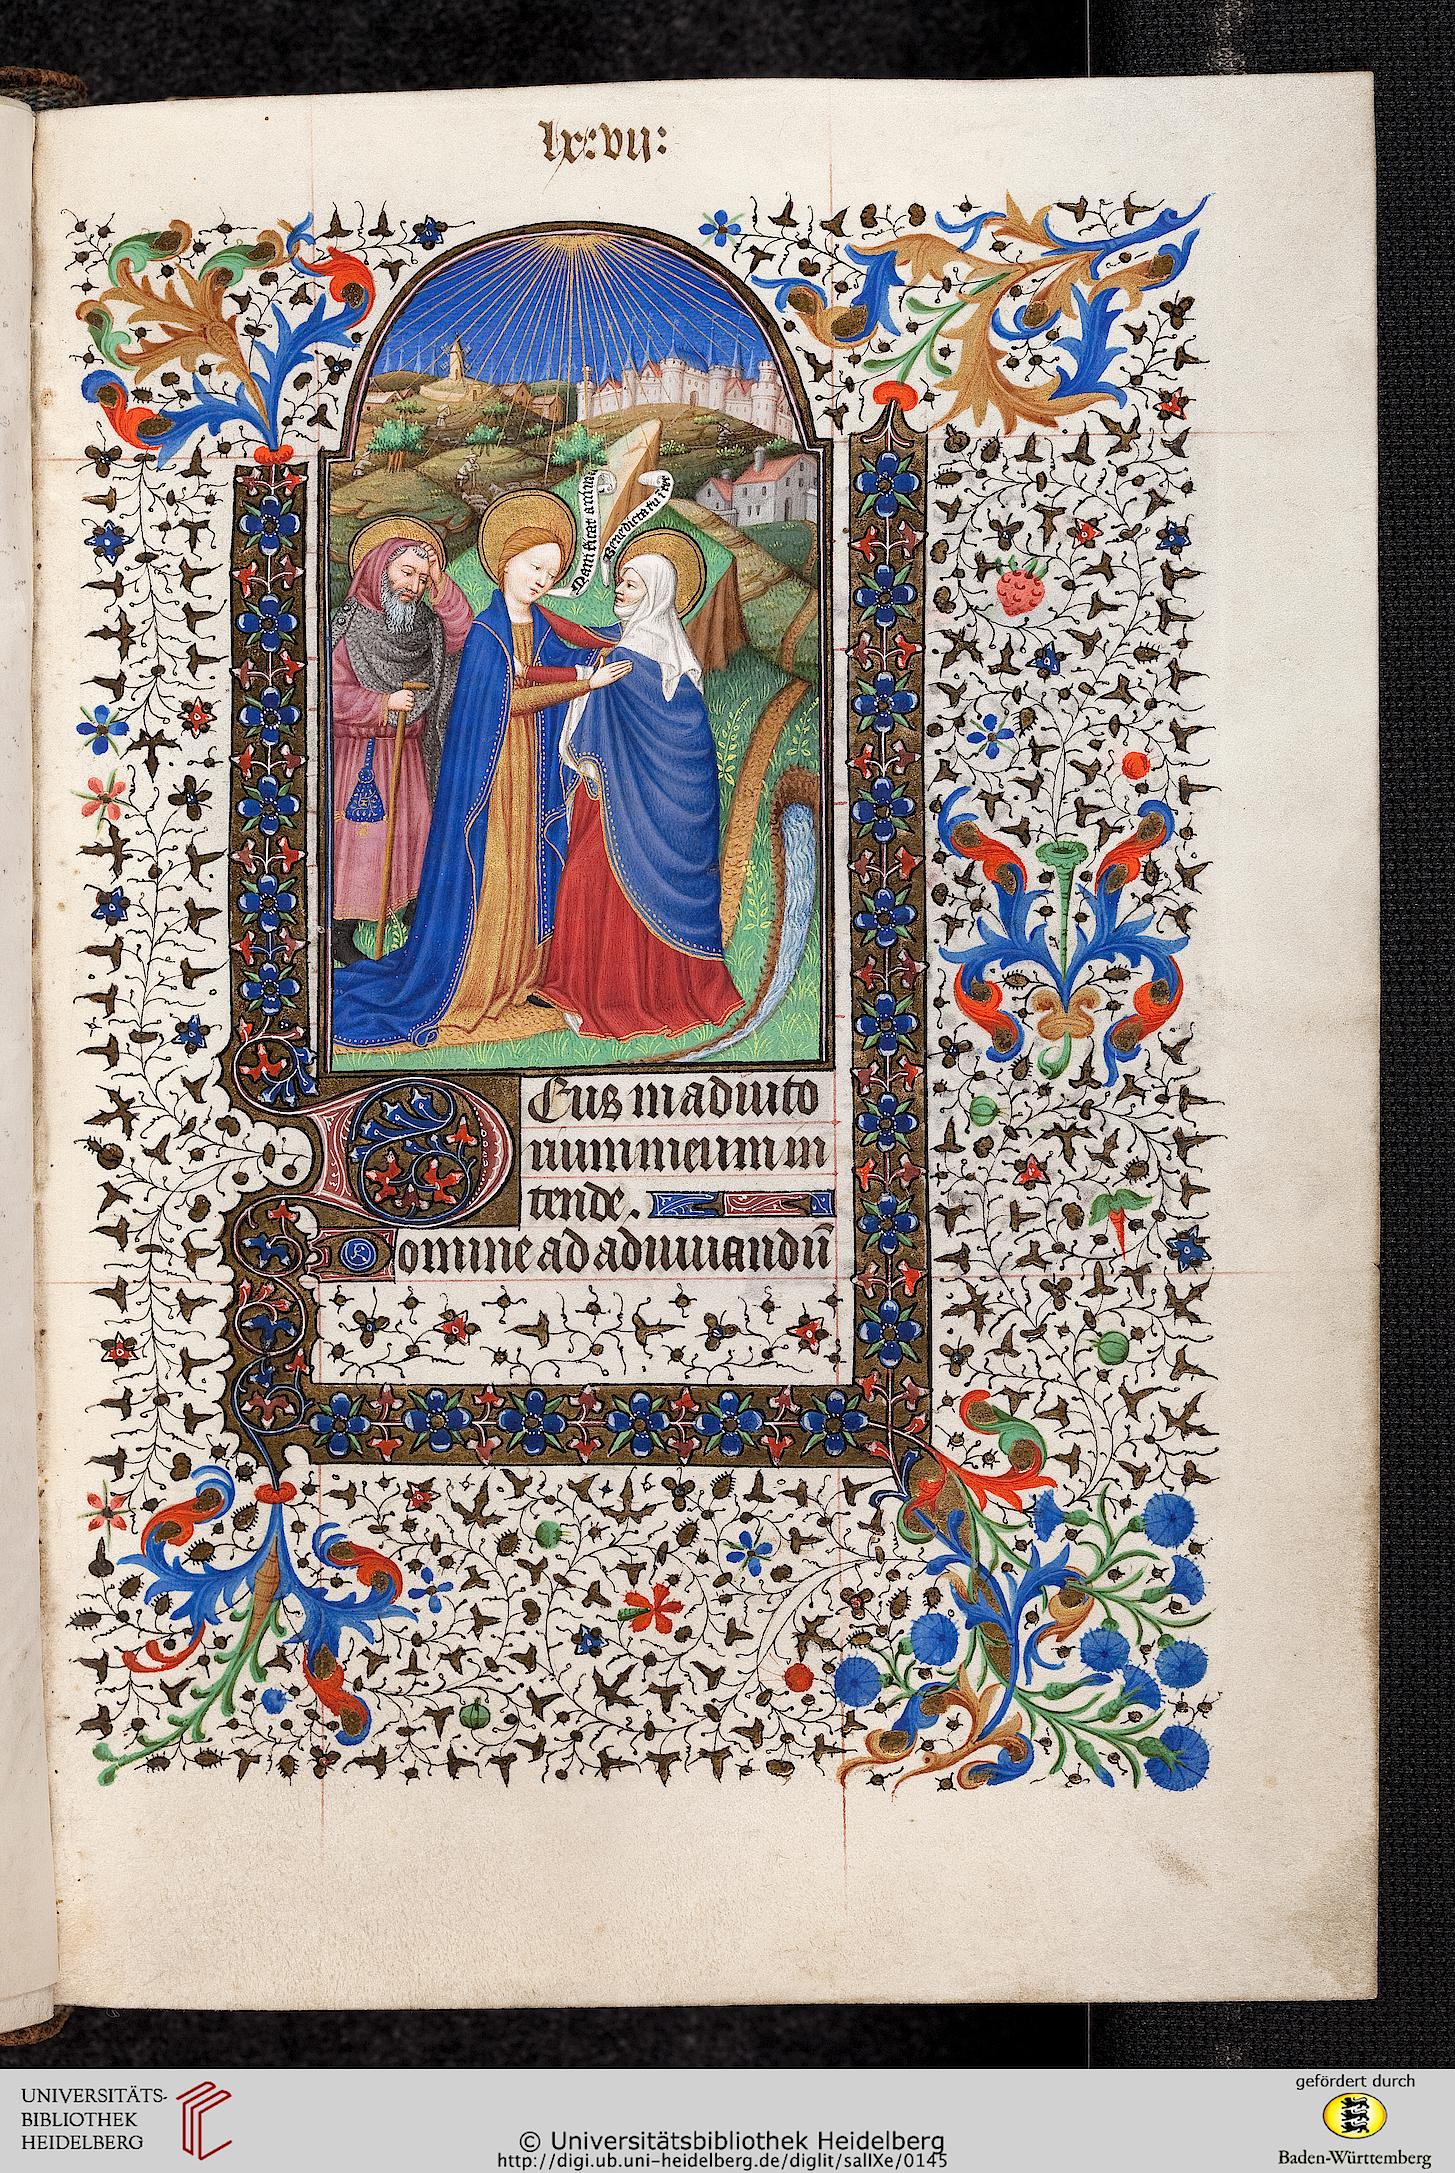 lxvii:
Magnificat anima
Benedicta tu i ter
Deus in adiuto
rium meum in
tende.
Domine ad adiuuandū
UNIVERSITÄTS-
BIBLIOTHEK
HEIDELBERG
© Universitätsbibliothek Heidelberg
http://digi.ub.uni-heidelberg.de/diglit/salIXe/0145
gefördert durch
Baden-Württemberg